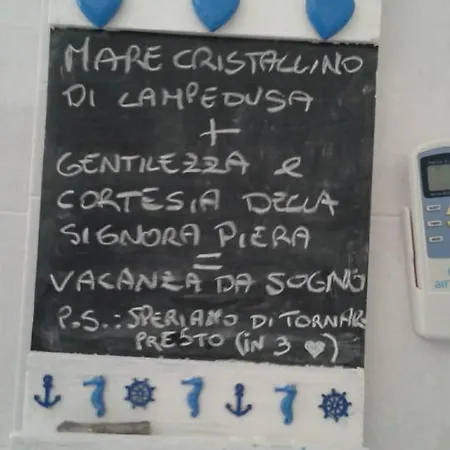 MARE CRISTALLINO
DI LAMPEDUSA
+
GENTILEZZA e
CORTESIA DELLA
SIGNORA PIERA
=
VACANZA DA SOGNO
P.S.: SPERIAMO DI TORNAR
PRESTO (IN 3 ♥)